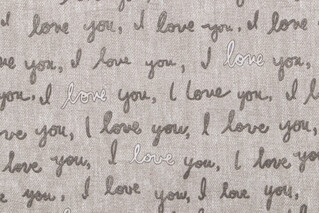 love you, I love you, I love
love you, I love you, I love you,
you, I love you, I love you, I l
you, I love you, I love you,
love you, I love you, I love
you, I love you, I love you,